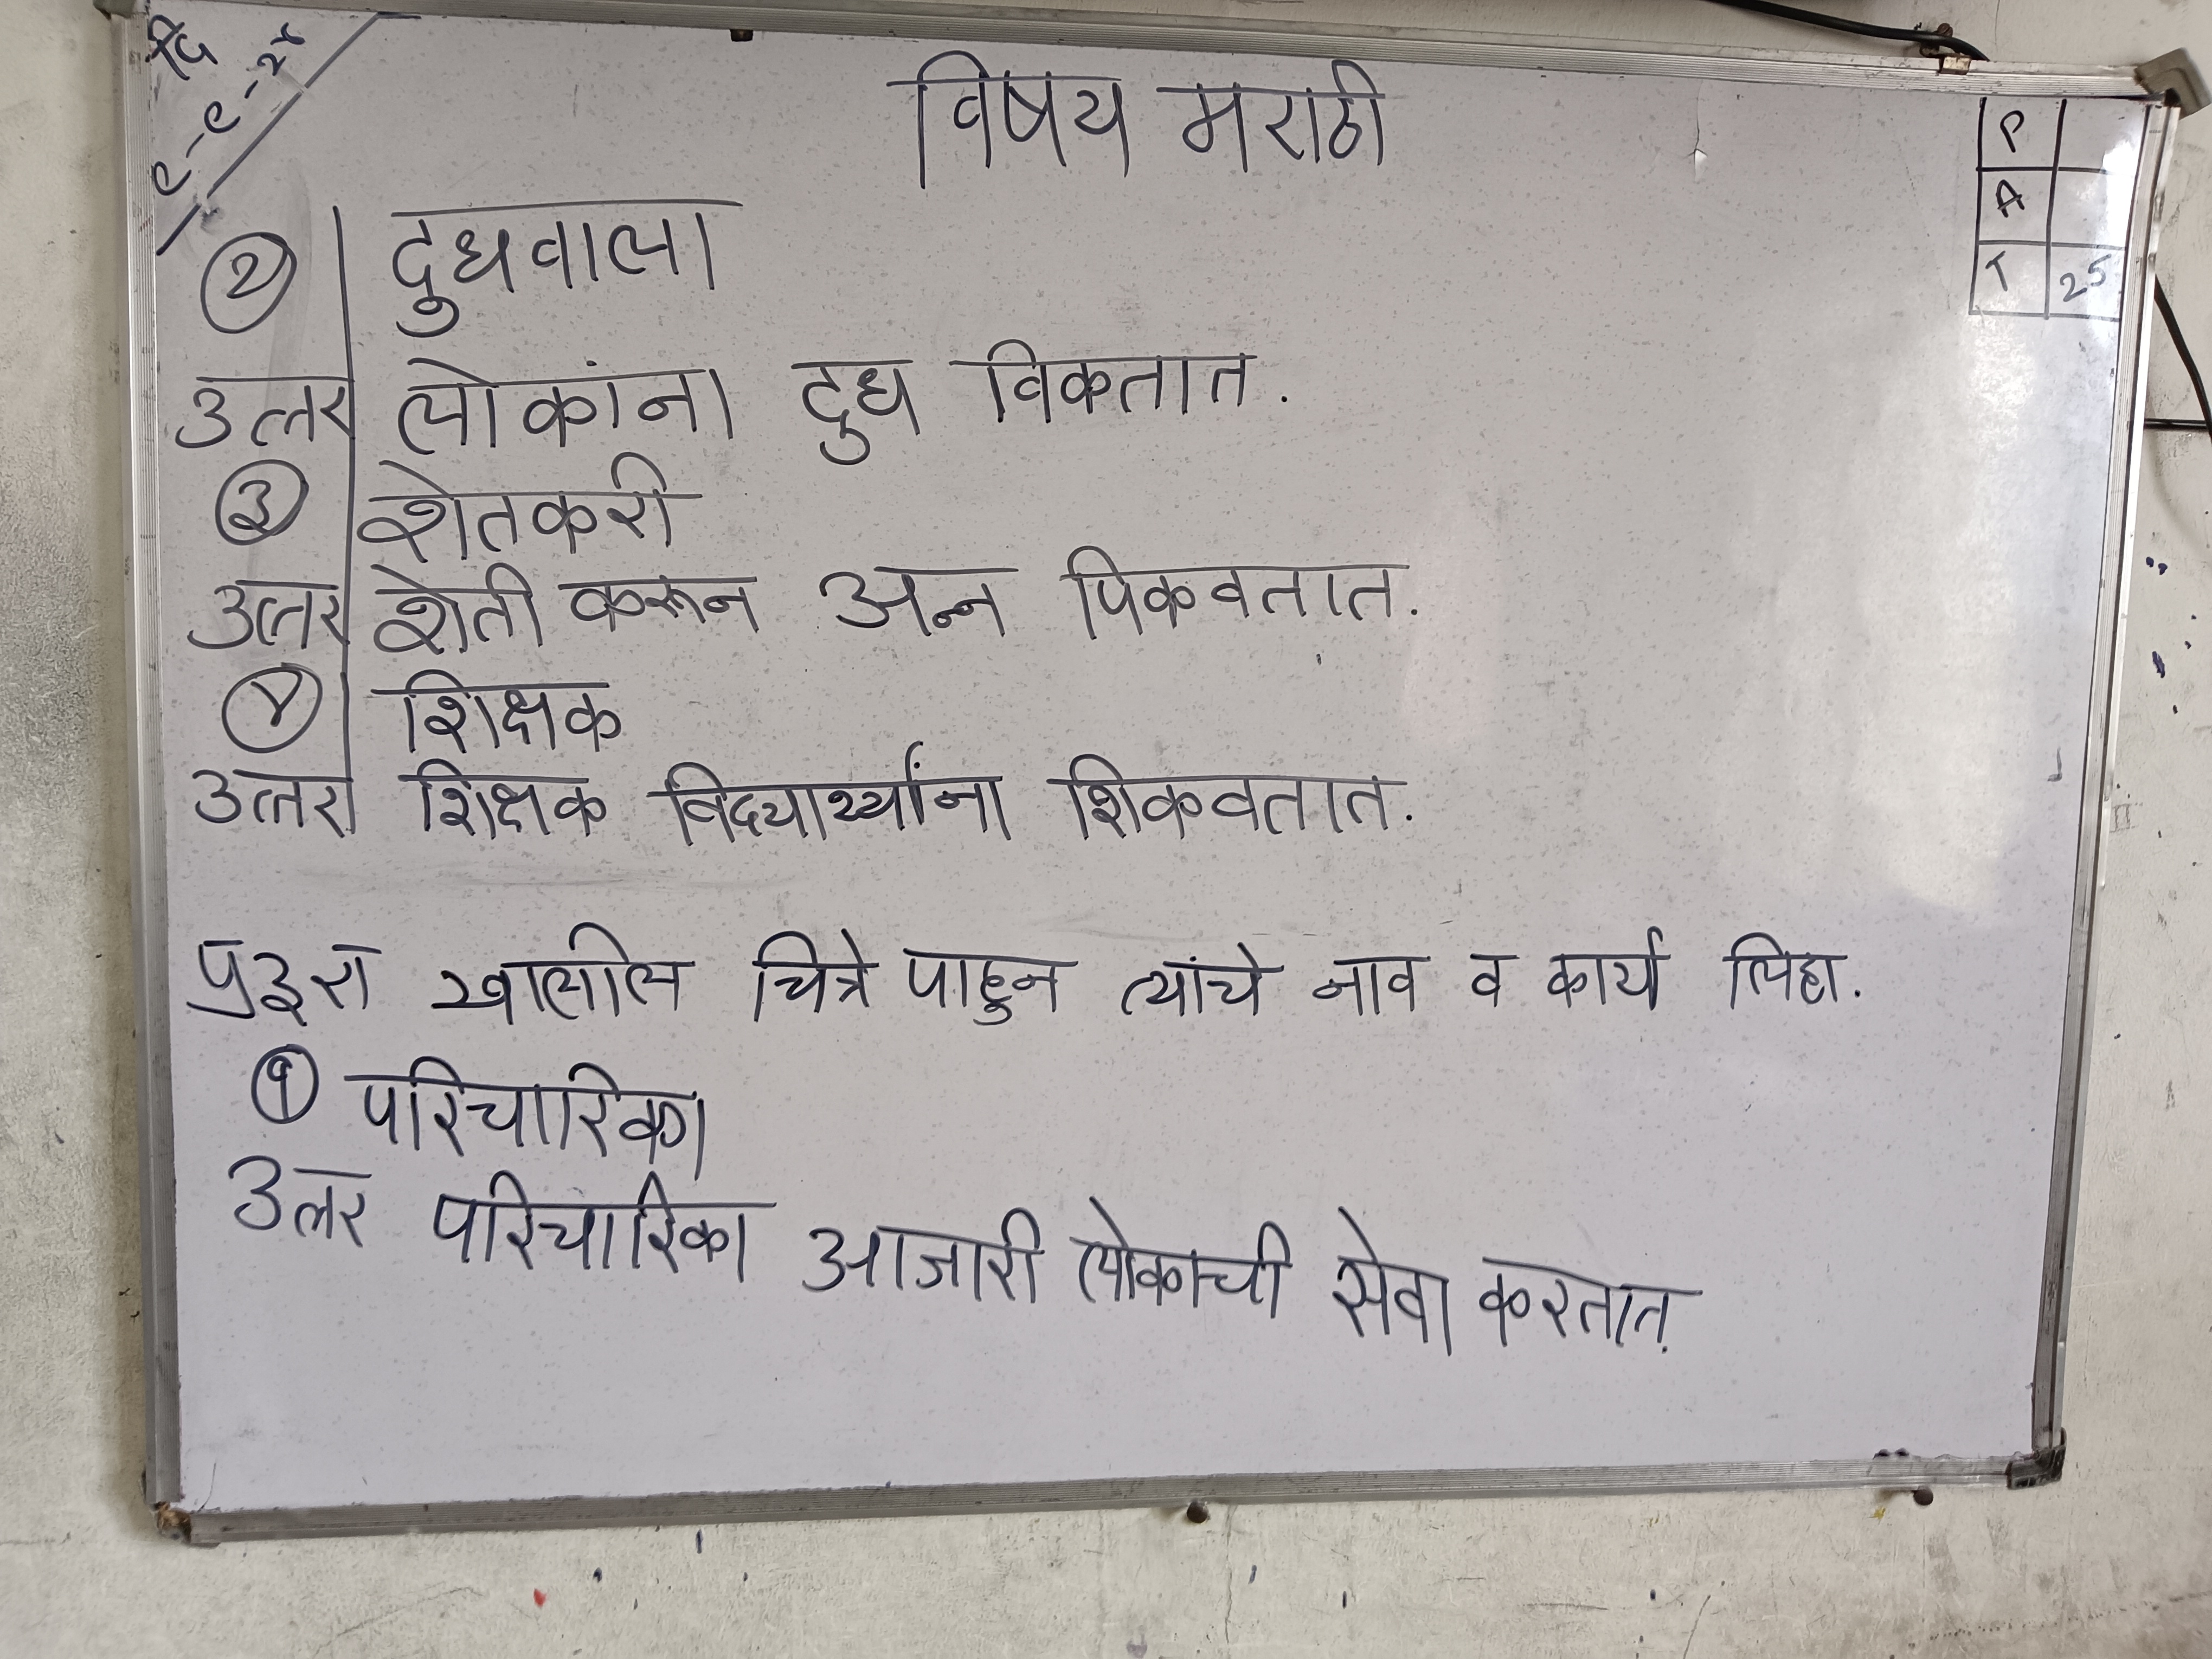 दि
९-९-२५
विषय मराठी
P
A
T 25
२ दुधवाला
उत्तर लोकांना दुध विकतात.
३ शेतकरी
उत्तर शेती करून अन्न पिकवतात.
४ शिक्षक
उत्तर शिक्षक विद्यार्थ्यांना शिकवतात.
प्र३रा खालील चित्रे पाहुन त्यांचे नाव व कार्य लिहा.
१ परिचारिका
उत्तर परिचारिका आजारी लोकाची सेवा करतात.